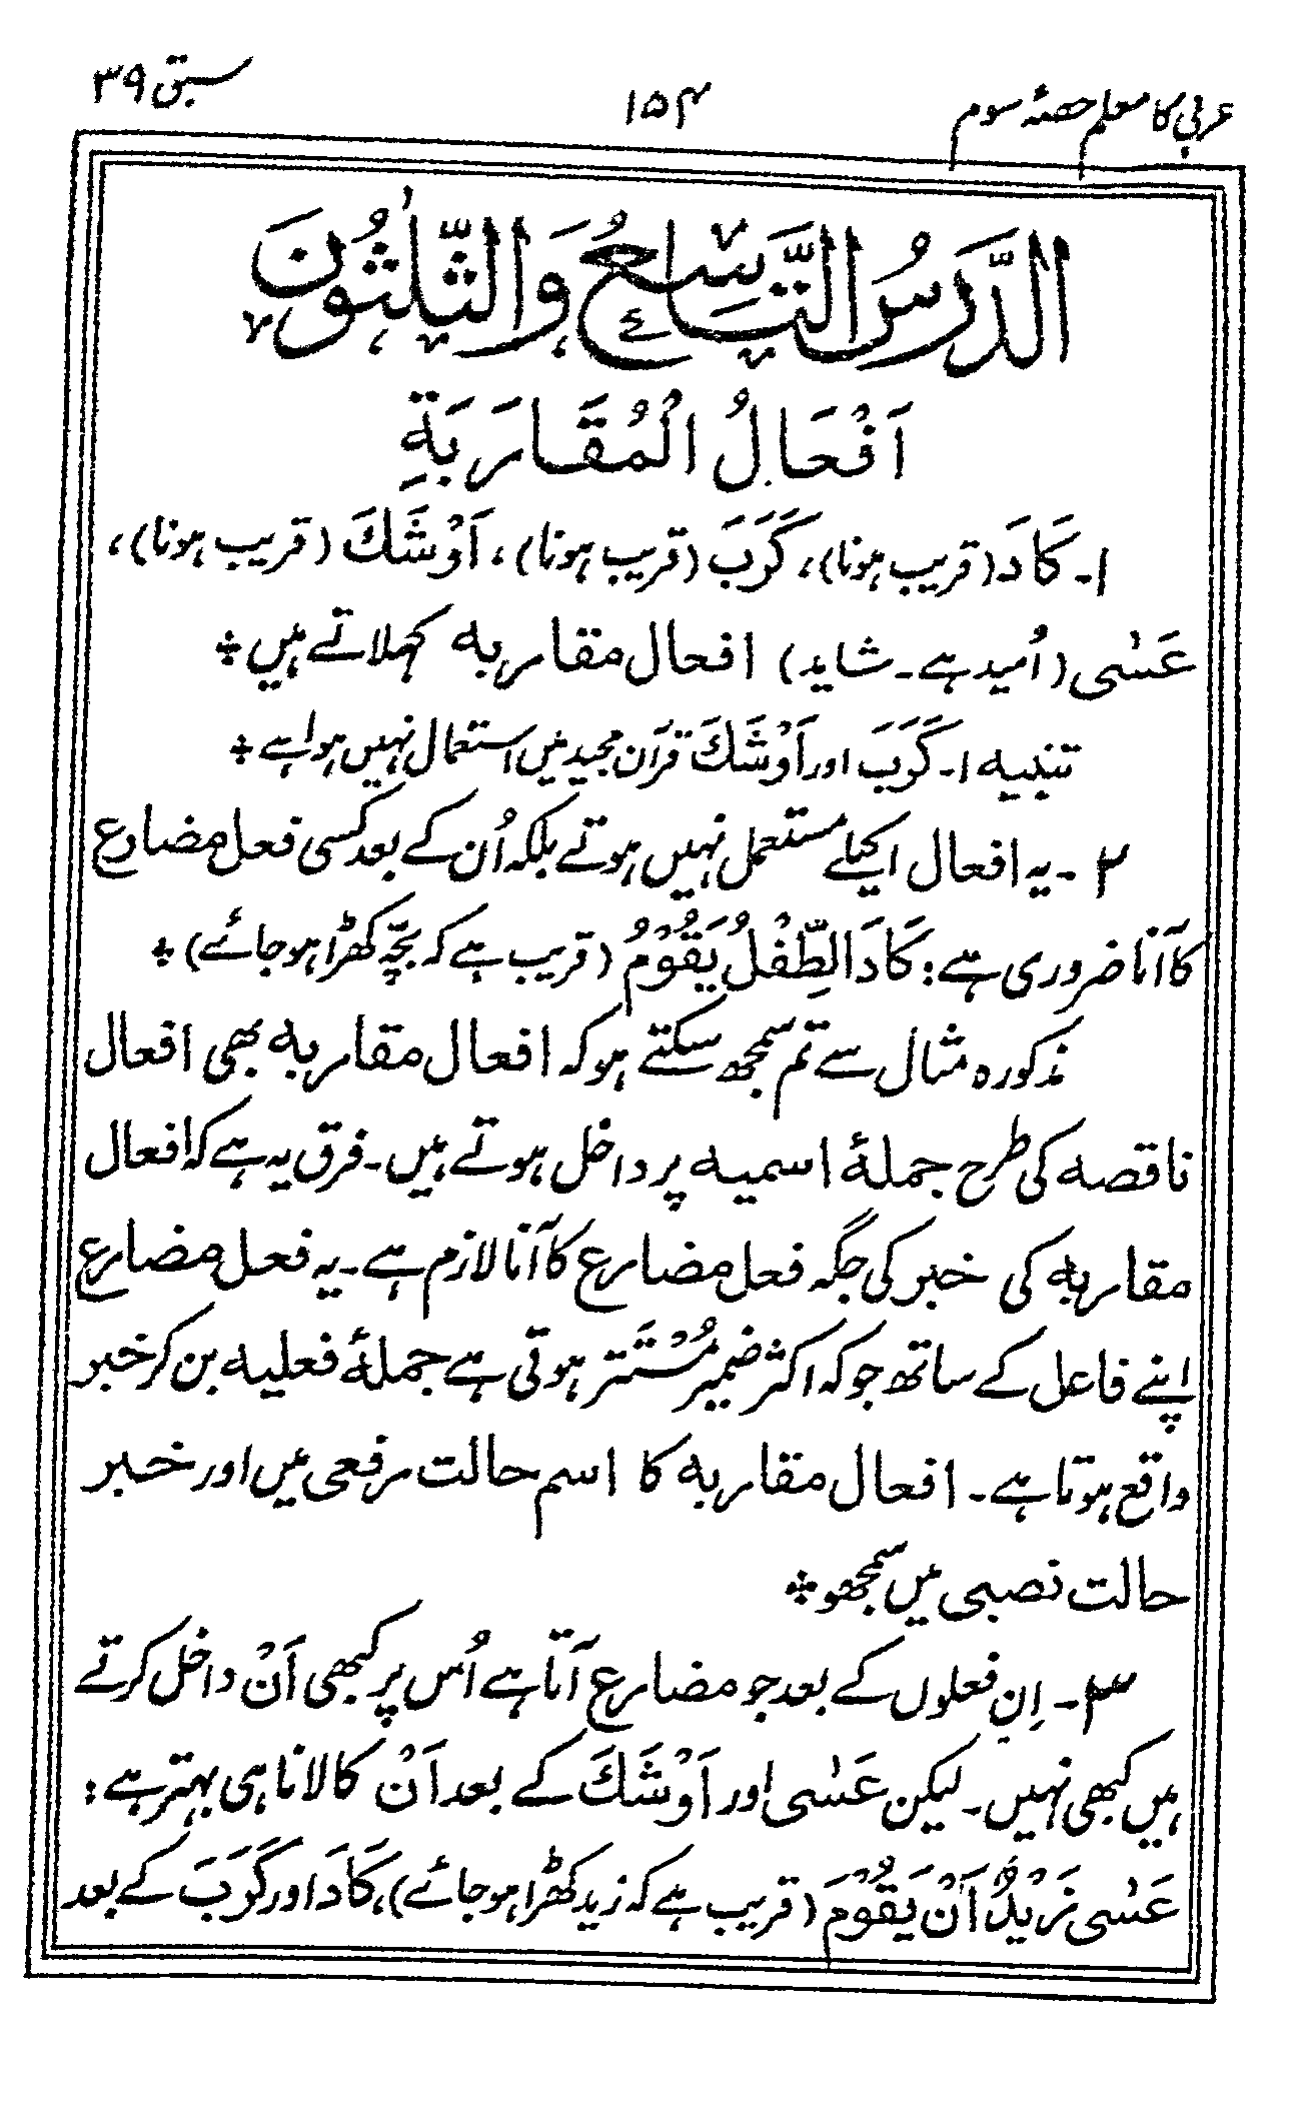 عربی کا معلم حصۂ سوم ۱۵۴ سبق ۳۹
الدَّرْسُ التَّاسِعُ وَالثَّلٰثُوْنَ
اَفْعَالُ الْمُقَارَبَةِ
۱۔ كَادَ (قریب ہونا)، كَرَبَ (قریب ہونا)، اَوْشَكَ (قریب ہونا)،
عَسٰى (اُمید ہے۔ شاید) افعال مقاربہ کہلاتے ہیں ٭
تنبیہ ۱۔ كَرَبَ اور اَوْشَكَ قرآن مجید میں استعمال نہیں ہوا ہے ٭
۲۔ یہ افعال اکیلے مستعمل نہیں ہوتے بلکہ اُن کے بعد کسی فعل مضارع
کا آنا ضروری ہے: كَادَ الطِّفْلُ يَقُوْمُ (قریب ہے کہ بچّہ کھڑا ہو جائے) ٭
مذکورہ مثال سے تم سمجھ سکتے ہو کہ افعال مقاربہ بھی افعال
ناقصہ کی طرح جملۂ اسمیہ پر داخل ہوتے ہیں۔ فرق یہ ہے کہ افعال
مقاربہ کی خبر کی جگہ فعل مضارع کا آنا لازم ہے۔ یہ فعل مضارع
اپنے فاعل کے ساتھ جو کہ اکثر ضمیر مُسْتَتر ہوتی ہے جملۂ فعلیہ بن کر خبر
واقع ہوتا ہے۔ افعال مقاربہ کا اسم حالت رفعی میں اور خبر
حالت نصبی میں سمجھو ٭
۳۔ اِن فعلوں کے بعد جو مضارع آتا ہے اُس پر کبھی اَنْ داخل کرتے
ہیں کبھی نہیں۔ لیکن عَسٰى اور اَوْشَكَ کے بعد اَنْ کا لانا ہی بہتر ہے:
عَسٰى زَيْدٌ اَنْ يَقُوْمَ (قریب ہے کہ زید کھڑا ہو جائے)، كَادَ اور كَرَبَ کے بعد